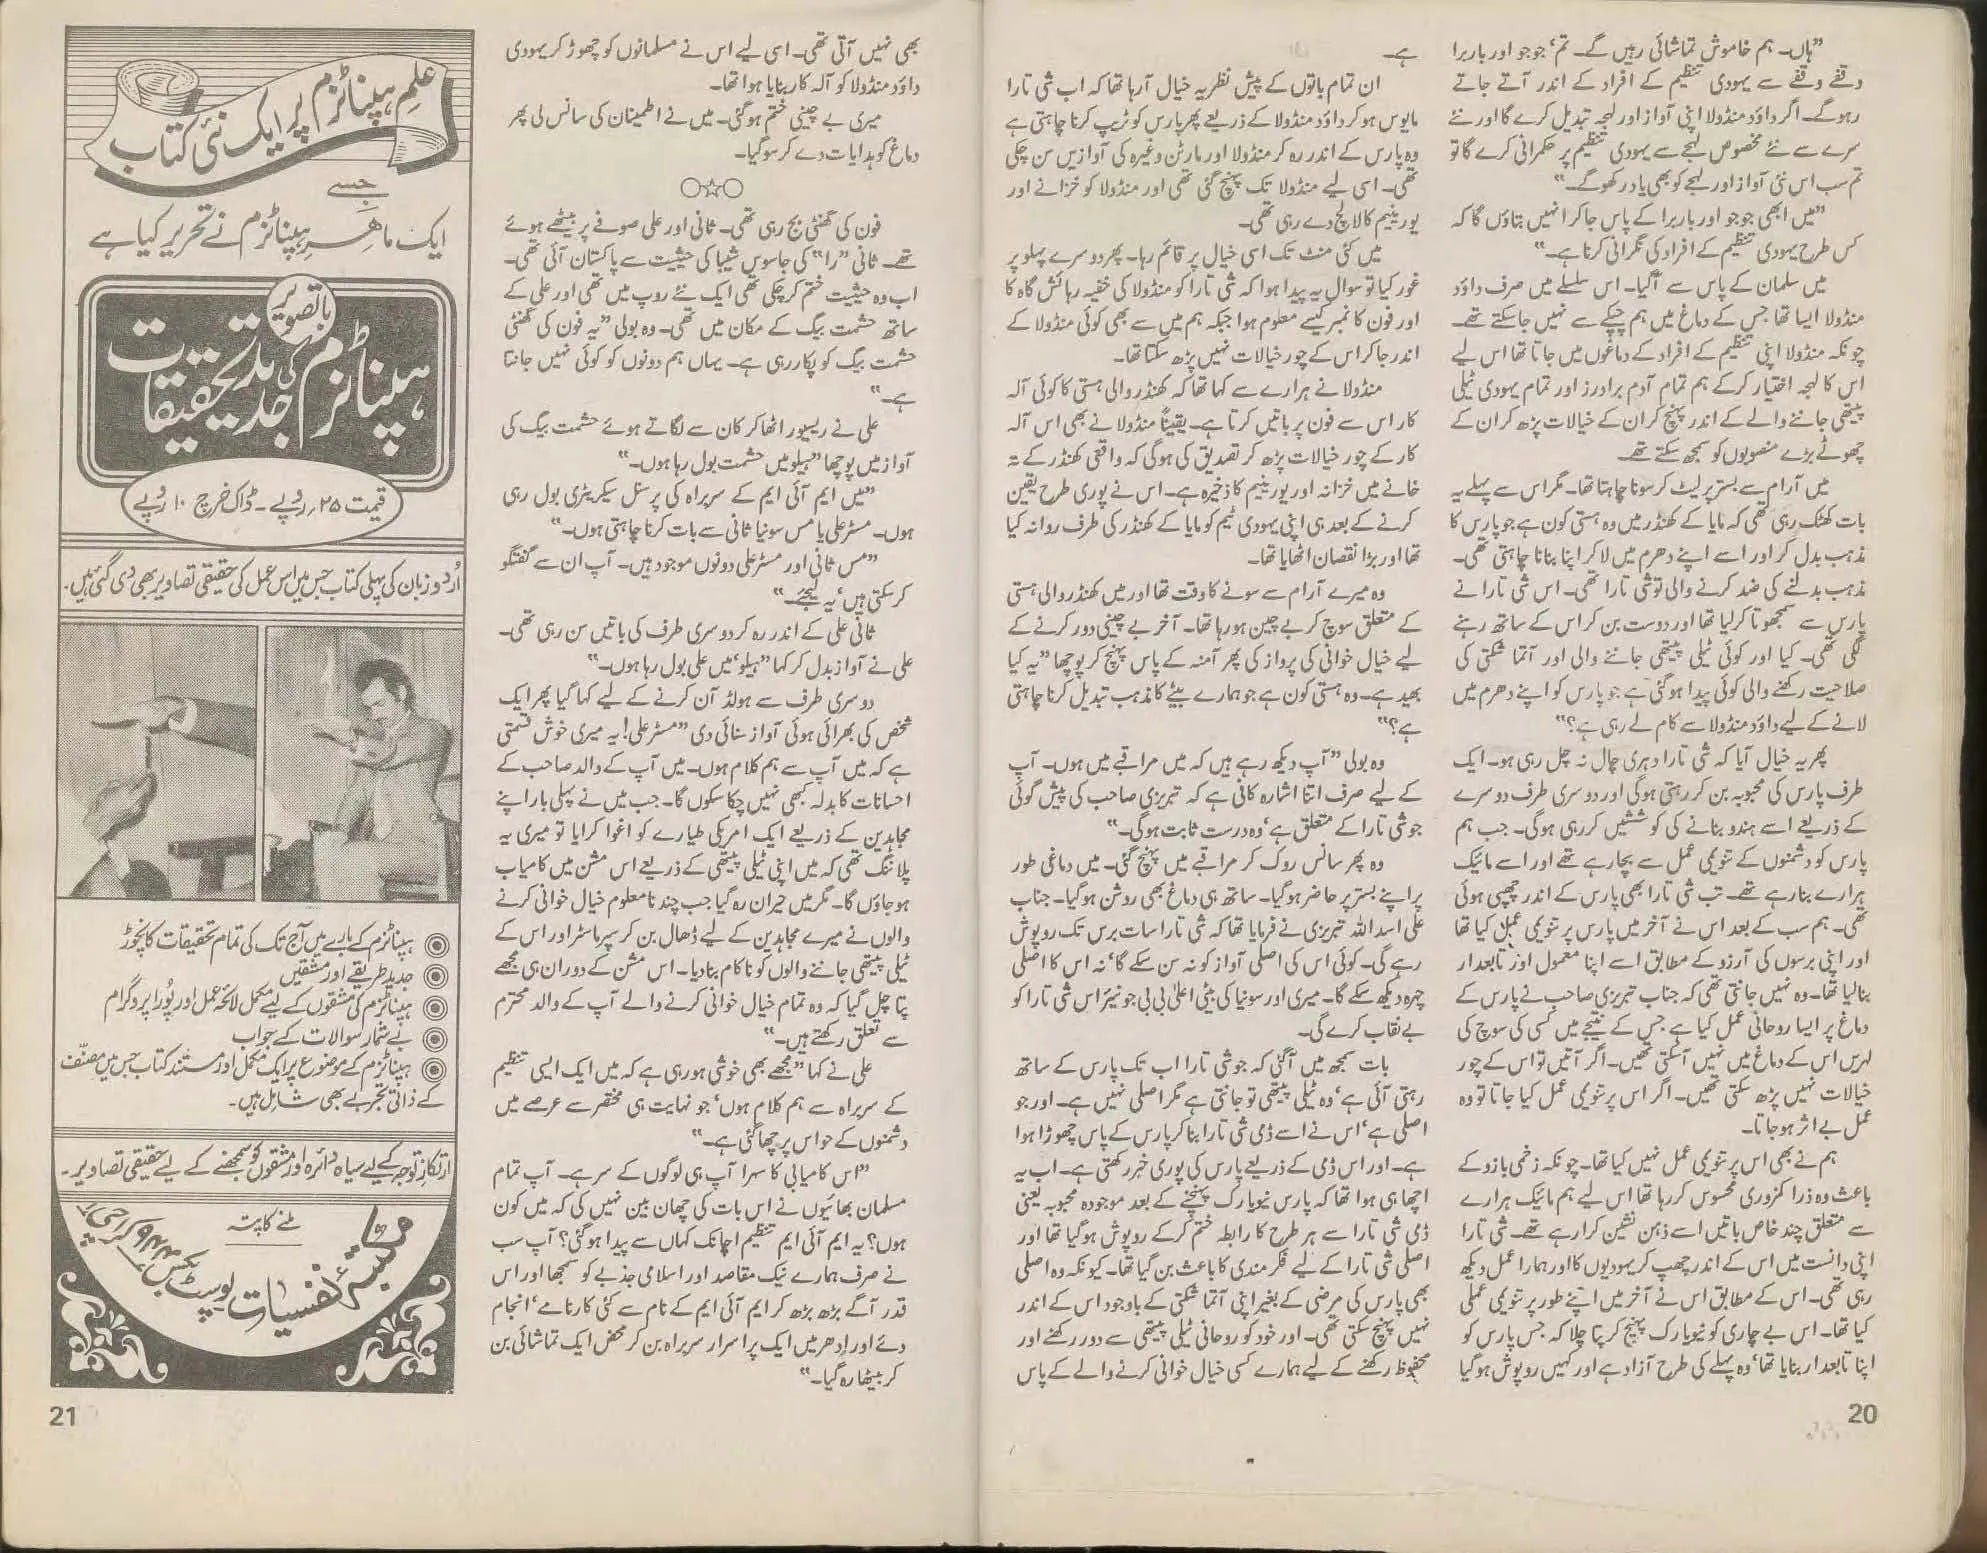 ”ہاں۔ ہم خاموش تماشائی رہیں گے۔ تم‘ جوجو اور باربرا
وقفے وقفے سے یہودی تنظیم کے افراد کے اندر آتے جاتے
رہوگے۔ اگر داؤد منڈولا اپنی آواز اور لہجہ تبدیل کرے گا اور نئے
سرے سے نئے مخصوص لہجے سے یہودی تنظیم پر حکمرانی کرے گا تو
تم سب اس نئی آواز اور لہجے کو بھی یاد رکھو گے۔“
”میں ابھی جوجو اور باربرا کے پاس جاکر انہیں بتاؤں گا کہ
کس طرح یہودی تنظیم کے افراد کی نگرانی کرنا ہے۔“
میں سلمان کے پاس سے آگیا۔ اس سلسلے میں صرف داؤد
منڈولا ایسا تھا جس کے دماغ میں ہم چپکے سے نہیں جاسکتے تھے۔
چونکہ منڈولا اپنی تنظیم کے افراد کے دماغوں میں جاتا تھا اس لیے
اس کا لہجہ اختیار کرکے ہم تمام آدم برادرز اور تمام یہودی ٹیلی
پیتھی جاننے والے کے اندر پہنچ کر ان کے خیالات پڑھ کر ان کے
چھوٹے بڑے منصوبوں کو سمجھ سکتے تھے۔
میں آرام سے بستر پر لیٹ کر سونا چاہتا تھا۔ مگر اس سے پہلے یہ
بات کھٹک رہی تھی کہ مایا کے کھنڈر میں وہ ہستی کون ہے جو پارس کا
مذہب بدل کر اور اسے اپنے دھرم میں لاکر اپنا بنانا چاہتی تھی۔
مذہب بدلنے کی ضد کرنے والی تو شی تارا تھی۔ اس شی تارا نے
پارس سے سمجھوتا کرلیا تھا اور دوست بن کر اس کے ساتھ رہنے
لگی تھی۔ کیا اور کوئی ٹیلی پیتھی جاننے والی اور آتما شکتی کی
صلاحیت رکھنے والی کوئی پیدا ہوگئی ہے جو پارس کو اپنے دھرم میں
لانے کے لیے داؤد منڈولا سے کام لے رہی ہے؟“
پھر یہ خیال آیا کہ شی تارا دہری چال نہ چل رہی ہو۔ ایک
طرف پارس کی محبوبہ بن کر رہتی ہوگی اور دوسری طرف دوسرے
کے ذریعے اسے ہندو بنانے کی کوششیں کررہی ہوگی۔ جب ہم
پارس کو دشمنوں کے تنویمی عمل سے بچا رہے تھے اور اسے مائیک
ہرارے بنا رہے تھے۔ تب شی تارا بھی پارس کے اندر چھپی ہوئی
تھی۔ ہم سب کے بعد اس نے آخر میں پارس پر تنویمی عمل کیا تھا
اور اپنی برسوں کی آرزو کے مطابق اسے اپنا معمول اور تابعدار
بنالیا تھا۔ وہ نہیں جانتی تھی کہ جناب تبریزی صاحب نے پارس کے
دماغ پر ایسا روحانی عمل کیا ہے جس کے نتیجے میں کسی کی سوچ کی
لہریں اس کے دماغ میں نہیں آسکتی تھیں۔ اگر آتیں تو اس کے چور
خیالات نہیں پڑھ سکتی تھیں۔ اگر اس پر تنویمی عمل کیا جاتا تو وہ
عمل بے اثر ہوجاتا۔
ہم نے بھی اس پر تنویمی عمل نہیں کیا تھا۔ چونکہ زخمی بازو کے
باعث وہ ذرا کمزوری محسوس کررہا تھا اس لیے ہم مائیک ہرارے
سے متعلق چند خاص باتیں اسے ذہن نشین کرارہے تھے۔ شی تارا
اپنی دانست میں اس کے اندر چھپ کر یہودیوں کا اور ہمارا عمل دیکھ
رہی تھی۔ اس کے مطابق اس نے آخر میں اپنے طور پر تنویمی عمل
کیا تھا۔ اس بے چاری کو نیویارک پہنچ کر پتا چلا کہ جس پارس کو
اپنا تابعدار بنایا تھا‘ وہ پہلے کی طرح آزاد ہے اور کہیں روپوش ہوگیا
20
ہے۔
ان تمام باتوں کے پیش نظر یہ خیال آرہا تھا کہ اب شی تارا
مایوس ہوکر داؤد منڈولا کے ذریعے پھر پارس کو ٹریپ کرنا چاہتی ہے
وہ پارس کے اندر رہ کر منڈولا اور مارٹن وغیرہ کی آوازیں سن چکی
تھی۔ اسی لیے منڈولا تک پہنچ گئی تھی اور منڈولا کو خزانے اور
یورینیم کا لالچ دے رہی تھی۔
میں کئی منٹ تک اسی خیال پر قائم رہا۔ پھر دوسرے پہلو پر
غور کیا تو سوال یہ پیدا ہوا کہ شی تارا کو منڈولا کی خفیہ رہائش گاہ کا
اور فون کا نمبر کیسے معلوم ہوا جبکہ ہم میں سے بھی کوئی منڈولا کے
اندر جاکر اس کے چور خیالات نہیں پڑھ سکتا تھا۔
منڈولا نے ہرارے سے کہا تھا کہ کھنڈر والی ہستی کا کوئی آلہ
کار اس سے فون پر باتیں کرتا ہے۔ یقیناً منڈولا نے بھی اس آلہ
کار کے چور خیالات پڑھ کر تصدیق کی ہوگی کہ واقعی کھنڈر کے تہ
خانے میں خزانہ اور یورینیم کا ذخیرہ ہے۔ اس نے پوری طرح یقین
کرنے کے بعد ہی اپنی یہودی ٹیم کو مایا کے کھنڈر کی طرف روانہ کیا
تھا اور بڑا نقصان اٹھایا تھا۔
وہ میرے آرام سے سونے کا وقت تھا اور میں کھنڈر والی ہستی
کے متعلق سوچ کر بے چین ہورہا تھا۔ آخر بے چینی دور کرنے کے
لیے خیال خوانی کی پرواز کی پھر آمنہ کے پاس پہنچ کر پوچھا ”یہ کیا
بھید ہے۔ وہ ہستی کون ہے جو ہمارے بیٹے کا مذہب تبدیل کرنا چاہتی
ہے؟“
وہ بولی ”آپ دیکھ رہے ہیں کہ میں مراقبے میں ہوں۔ آپ
کے لیے صرف اتنا اشارہ کافی ہے کہ تبریزی صاحب کی پیش گوئی
جو شی تارا کے متعلق ہے‘ وہ درست ثابت ہوگی۔“
وہ پھر سانس روک کر مراقبے میں پہنچ گئی۔ میں دماغی طور
پر اپنے بستر پر حاضر ہوگیا۔ ساتھ ہی دماغ بھی روشن ہوگیا۔ جناب
علی اسد اللہ تبریزی نے فرمایا تھا کہ شی تارا سات برس تک روپوش
رہے گی۔ کوئی اس کی اصلی آواز کو نہ سن سکے گا‘ نہ اس کا اصلی
چہرہ دیکھ سکے گا۔ میری اور سونیا کی بیٹی اعلیٰ بی بی جونیئر اس شی تارا کو
بے نقاب کرے گی۔
بات سمجھ میں آگئی کہ جو شی تارا اب تک پارس کے ساتھ
رہتی آئی ہے‘ وہ ٹیلی پیتھی تو جانتی ہے مگر اصلی نہیں ہے۔ اور جو
اصلی ہے‘ اس نے اسے ڈمی شی تارا بنا کر پارس کے پاس چھوڑا ہوا
ہے۔ اور اس ڈمی کے ذریعے پارس کی پوری خبر رکھتی ہے۔ اب یہ
اچھا ہی ہوا تھا کہ پارس نیویارک پہنچنے کے بعد موجودہ محبوبہ یعنی
ڈمی شی تارا سے ہر طرح کا رابطہ ختم کرکے روپوش ہوگیا تھا اور
اصلی شی تارا کے لیے فکرمندی کا باعث بن گیا تھا۔ کیونکہ وہ اصلی
بھی پارس کی مرضی کے بغیر اپنی آتما شکتی کے باوجود اس کے اندر
نہیں پہنچ سکتی تھی۔ اور خود کو روحانی ٹیلی پیتھی سے دور رکھنے اور
محفوظ رکھنے کے لیے ہمارے کسی خیال خوانی کرنے والے کے پاس
بھی نہیں آتی تھی۔ اسی لیے اس نے مسلمانوں کو چھوڑ کر یہودی
داؤد منڈولا کو آلہ کار بنایا ہوا تھا۔
میری بے چینی ختم ہوگئی۔ میں نے اطمینان کی سانس لی پھر
دماغ کو ہدایات دے کر سوگیا۔
○☆○
فون کی گھنٹی بج رہی تھی۔ ثانی اور علی صوفے پر بیٹھے ہوئے
تھے۔ ثانی ”را“ کی جاسوس شیبا کی حیثیت سے پاکستان آئی تھی۔
اب وہ حیثیت ختم کرچکی تھی ایک نئے روپ میں تھی اور علی کے
ساتھ حشمت بیگ کے مکان میں تھی۔ وہ بولی ”یہ فون کی گھنٹی
حشمت بیگ کو پکار رہی ہے۔ یہاں ہم دونوں کو کوئی نہیں جانتا
ہے۔“
علی نے ریسیور اٹھا کر کان سے لگاتے ہوئے حشمت بیگ کی
آواز میں پوچھا ”ہیلو میں حشمت بول رہا ہوں۔“
”میں ایم آئی ایم کے سربراہ کی پرسنل سیکریٹری بول رہی
ہوں۔ مسٹر علی یا مس سونیا ثانی سے بات کرنا چاہتی ہوں۔“
”مس ثانی اور مسٹر علی دونوں موجود ہیں۔ آپ ان سے گفتگو
کرسکتی ہیں‘ یہ لیجئے۔“
ثانی علی کے اندر رہ کر دوسری طرف کی باتیں سن رہی تھی۔
علی نے آواز بدل کر کہا ”ہیلو‘ میں علی بول رہا ہوں۔“
دوسری طرف سے ہولڈ آن کرنے کے لیے کہا گیا پھر ایک
شخص کی بھرائی ہوئی آواز سنائی دی ”مسٹر علی! یہ میری خوش قسمتی
ہے کہ میں آپ سے ہم کلام ہوں۔ میں آپ کے والد صاحب کے
احسانات کا بدلہ کبھی نہیں چکا سکوں گا۔ جب میں نے پہلی بار اپنے
مجاہدین کے ذریعے ایک امریکی طیارے کو اغوا کرایا تو میری یہ
پلاننگ تھی کہ میں اپنی ٹیلی پیتھی کے ذریعے اس مشن میں کامیاب
ہوجاؤں گا۔ مگر میں حیران رہ گیا جب چند نامعلوم خیال خوانی کرنے
والوں نے میرے مجاہدین کے لیے ڈھال بن کر سپر ماسٹر اور اس کے
ٹیلی پیتھی جاننے والوں کو ناکام بنادیا۔ اس مشن کے دوران ہی مجھے
پتا چل گیا کہ وہ تمام خیال خوانی کرنے والے آپ کے والد محترم
سے تعلق رکھتے ہیں۔“
علی نے کہا ”مجھے بھی خوشی ہورہی ہے کہ میں ایک ایسی تنظیم
کے سربراہ سے ہم کلام ہوں‘ جو نہایت ہی مختصر سے عرصے میں
دشمنوں کے حواس پر چھاگئی ہے۔“
”اس کامیابی کا سہرا آپ ہی لوگوں کے سر ہے۔ آپ تمام
مسلمان بھائیوں نے اس بات کی چھان بین نہیں کی کہ میں کون
ہوں؟ یہ ایم آئی ایم تنظیم اچانک کہاں سے پیدا ہوگئی؟ آپ سب
نے صرف ہمارے نیک مقاصد اور اسلامی جذبے کو سمجھا اور اس
قدر آگے بڑھ بڑھ کر ایم آئی ایم کے نام سے کئی کارنامے‘ انجام
دئے اور اِدھر میں ایک پراسرار سربراہ بن کر محض ایک تماشائی بن
کر بیٹھا رہ گیا۔“
علمِ ہپناٹزم پر ایک نئی کتاب
جسے
ایک ماہرِ ہپناٹزم نے تحریر کیا ہے
باتصویر
ہپناٹزم کی جدید تحقیقات
قیمت ۲۵ روپے ۔ ڈاک خرچ ۱۰ روپے
اُردو زبان کی پہلی کتاب جس میں اس عمل کی حقیقی تصاویر بھی دی گئی ہیں۔
ہپناٹزم کے بارے میں آج تک کی تمام تحقیقات کا نچوڑ
جدید طریقے اور مشقیں
ہپناٹزم کی مشقوں کے لیے مکمل لائحہ عمل اور پُورا پروگرام
بے شمار سوالات کے جواب
ہپناٹزم کے موضوع پر ایک مکمل اور مستند کتاب جس میں مصنّف
کے ذاتی تجربے بھی شامل ہیں۔
ارتکازِ توجہ کے لیے سیاہ دائرہ اور مشقوں کو سمجھنے کے لیے حقیقی تصاویر۔
ملنے کا پتہ
مکتبہ نفسیات پوسٹ بکس ۹۴۴ کراچی ۱
21